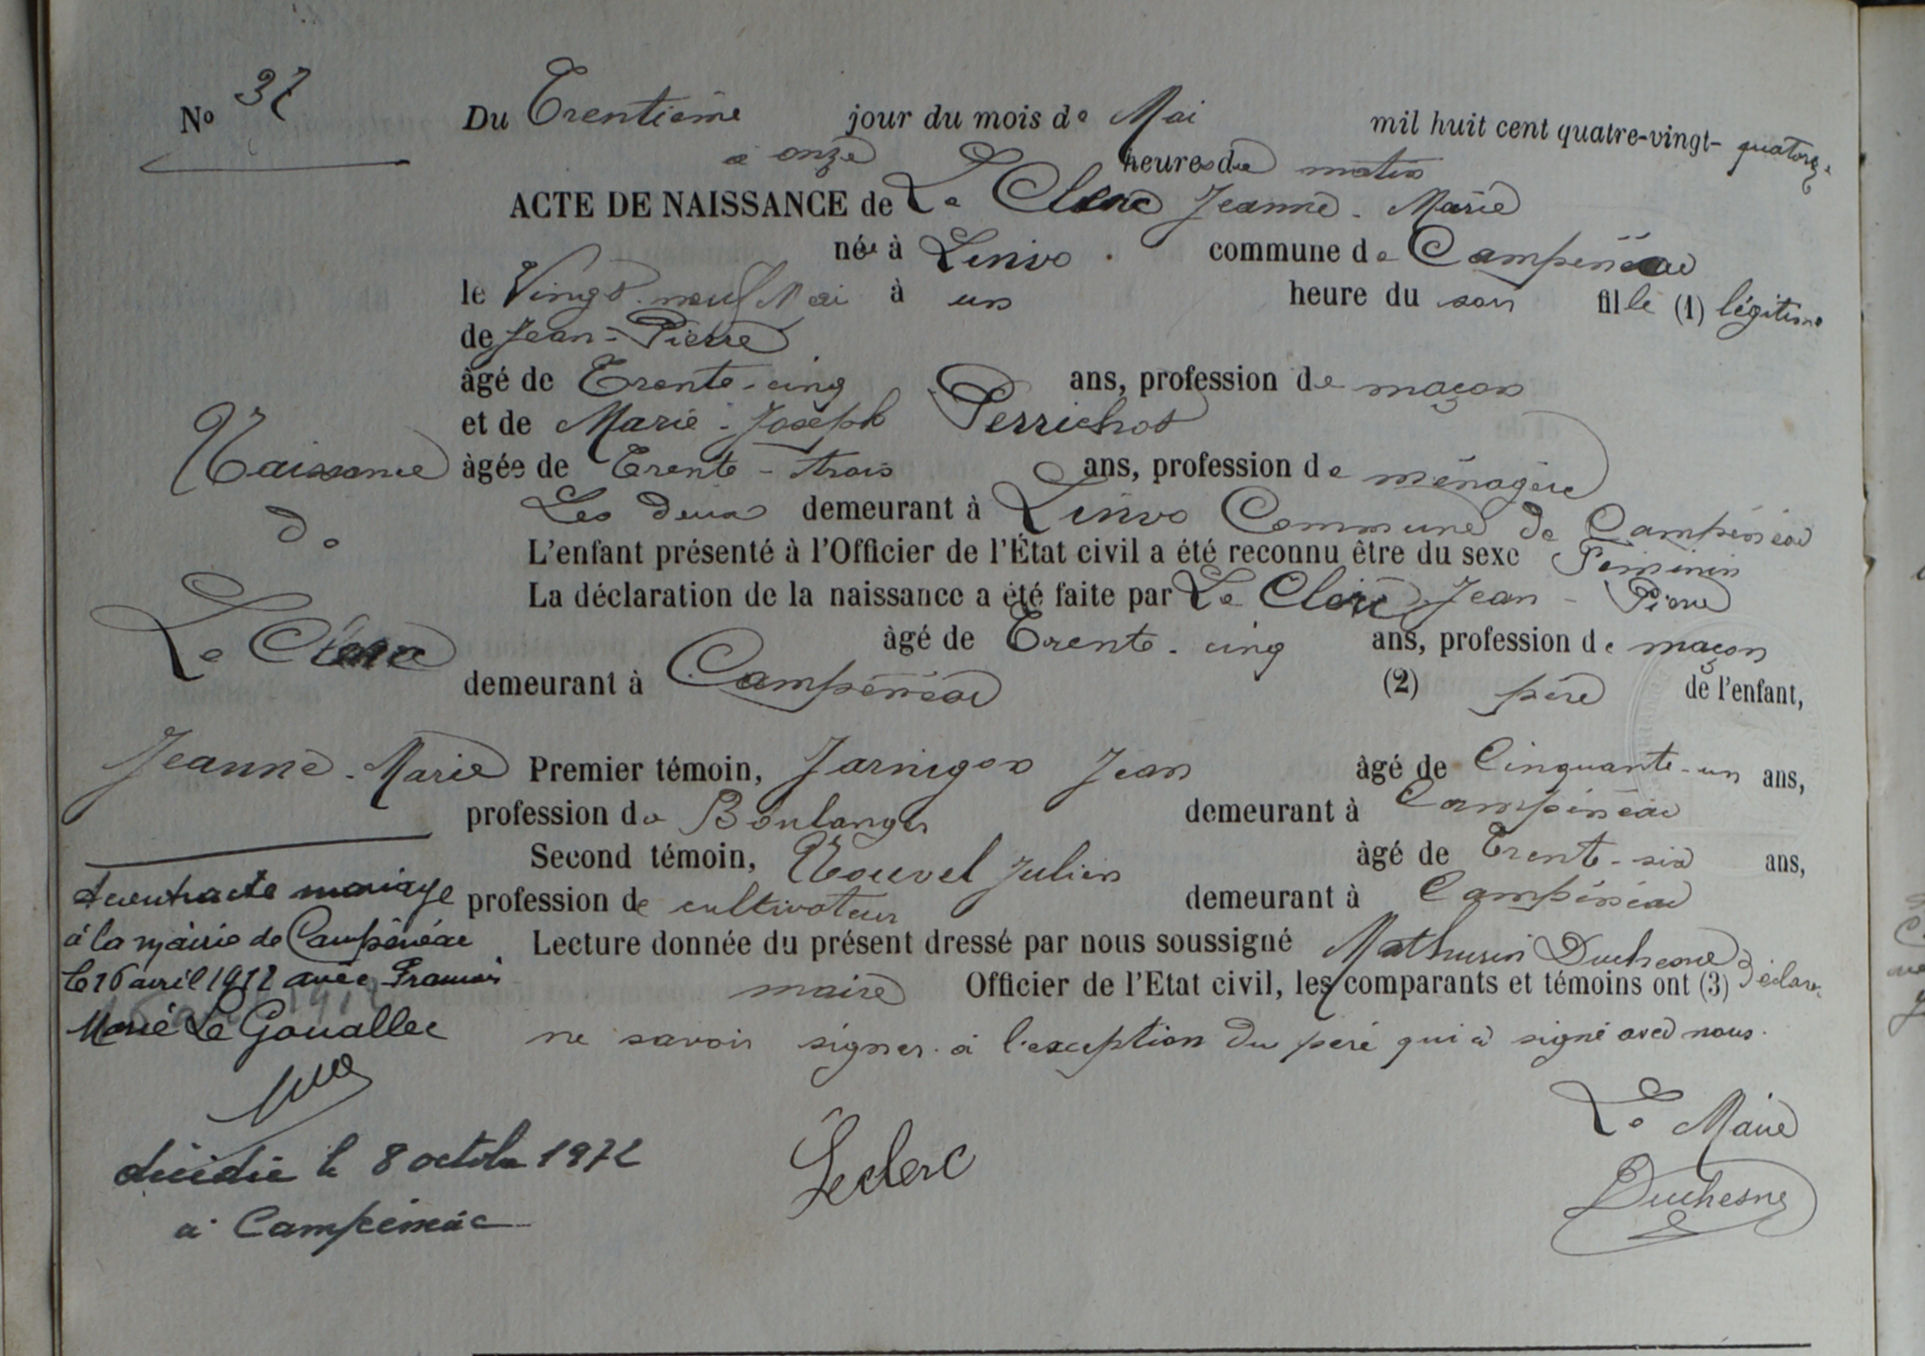 No 37
Du Trentième jour du mois de Mai mil huit cent quatre-vingt- quatorze
à onze heures du matin
ACTE DE NAISSANCE de Le Clerc Jeanne-Marie
née à Linvo commune de Campénéac
le Vingt-neuf Mai à un heure du soir fille (1) légitime
de Jean-Pierre
âgé de Trente-cinq ans, profession de maçon
et de Marie-Joseph Perrichot
âgée de Trente-trois ans, profession de ménagère
Les deux demeurant à Linvo Commune de Campénéac
L'enfant présenté à l'Officier de l'État civil a été reconnu être du sexe Féminin
La déclaration de la naissance a été faite par Le Clerc Jean-Pierre
âgé de Trente-cinq ans, profession de maçon
demeurant à Campénéac (2) père de l'enfant,
Premier témoin, Jarnigon Jean âgé de Cinquante-un ans,
profession de Boulanger demeurant à Campénéac
Second témoin, Nouvel Julien âgé de Trente-six ans,
profession de cultivateur demeurant à Campénéac
Lecture donnée du présent dressé par nous soussigné Mathurin Duchesne
maire Officier de l'Etat civil, les comparants et témoins ont (3) déclaré
ne savoir signer à l'exception du père qui a signé avec nous.
Leclerc
Le Maire
Duchesne
Naissance
de
Le Clerc
Jeanne-Marie
a contracté mariage
à la mairie de Campénéac
le 16 avril 1912 avec Francois
Marie Le Gouallec
décédée le 8 octobre 1972
à Campénéac